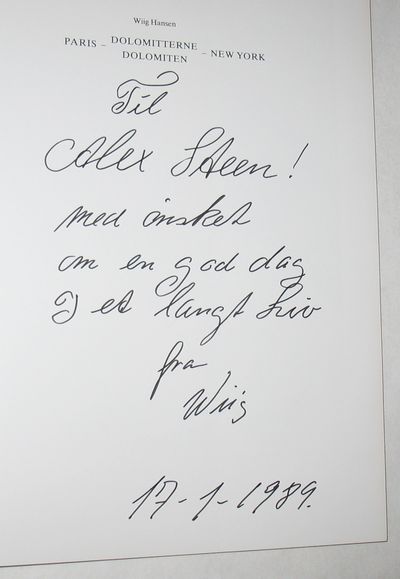 Wiig Hansen
PARIS – DOLOMITTERNE – NEW YORK
DOLOMITEN
Til
Alex Steen!
med ønsket
om en god dag
I et langt Liv
fra
Wiig
17-1-1989.